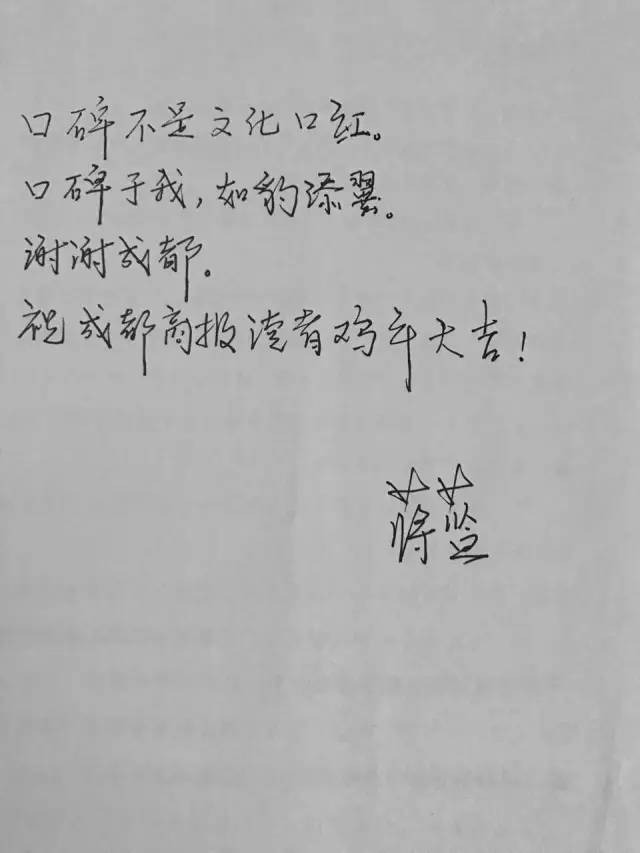 口碑不是文化口红。
口碑于我，如豹添翼。
谢谢成都。
祝成都商报读者鸡年大吉！
蒋蓝